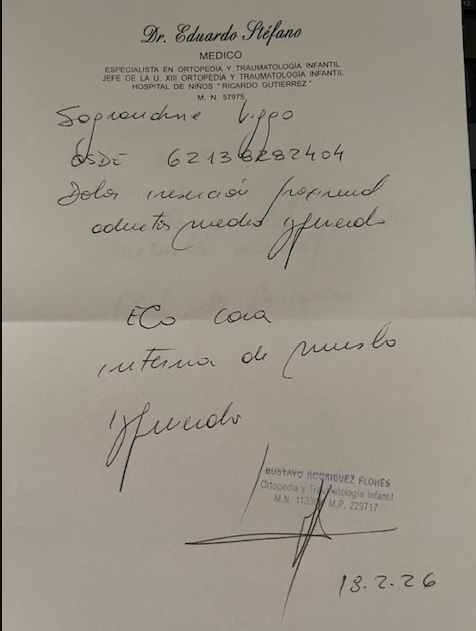 Dr. Eduardo Stéfano
MEDICO
ESPECIALISTA EN ORTOPEDIA Y TRAUMATOLOGÍA INFANTIL
JEFE DE LA U. XIII ORTOPEDIA Y TRAUMATOLOGÍA INFANTIL
HOSPITAL DE NIÑOS "RICARDO GUTIERREZ"
M. N. 57975
OSDE 62138282404
Dolor inserción proximal
aductor medio izquierdo
ECO cara
interna de muslo
izquierdo
GUSTAVO RODRIGUEZ FLORES
Ortopedia y Traumatología Infantil
M.P. 229717
13.2.26